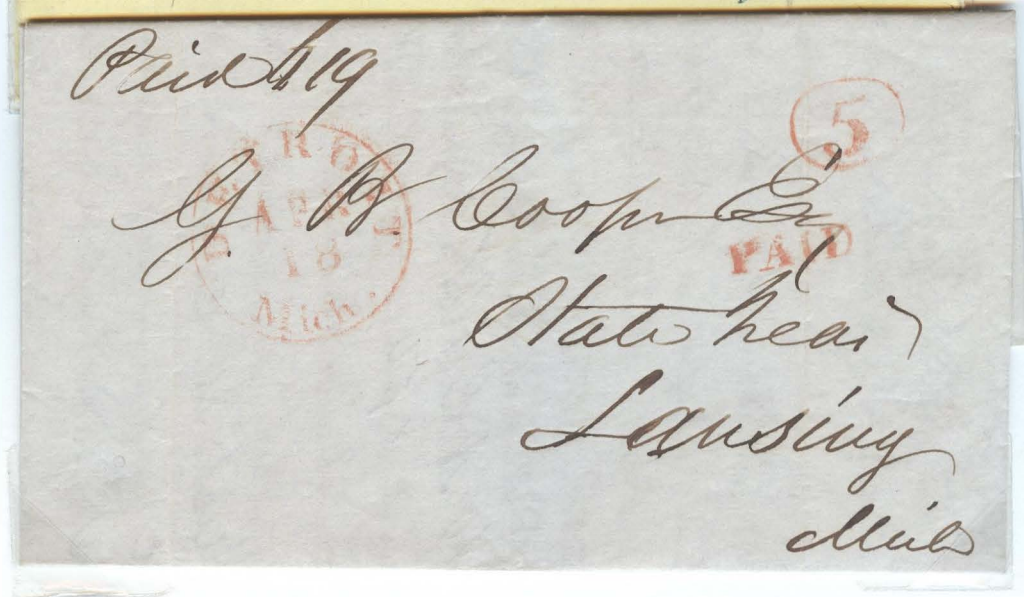 Paid 419
5
DETROIT
APR
18
Mich.
G. B. Cooper Esq
PAID
State Treas
Lansing
Mich